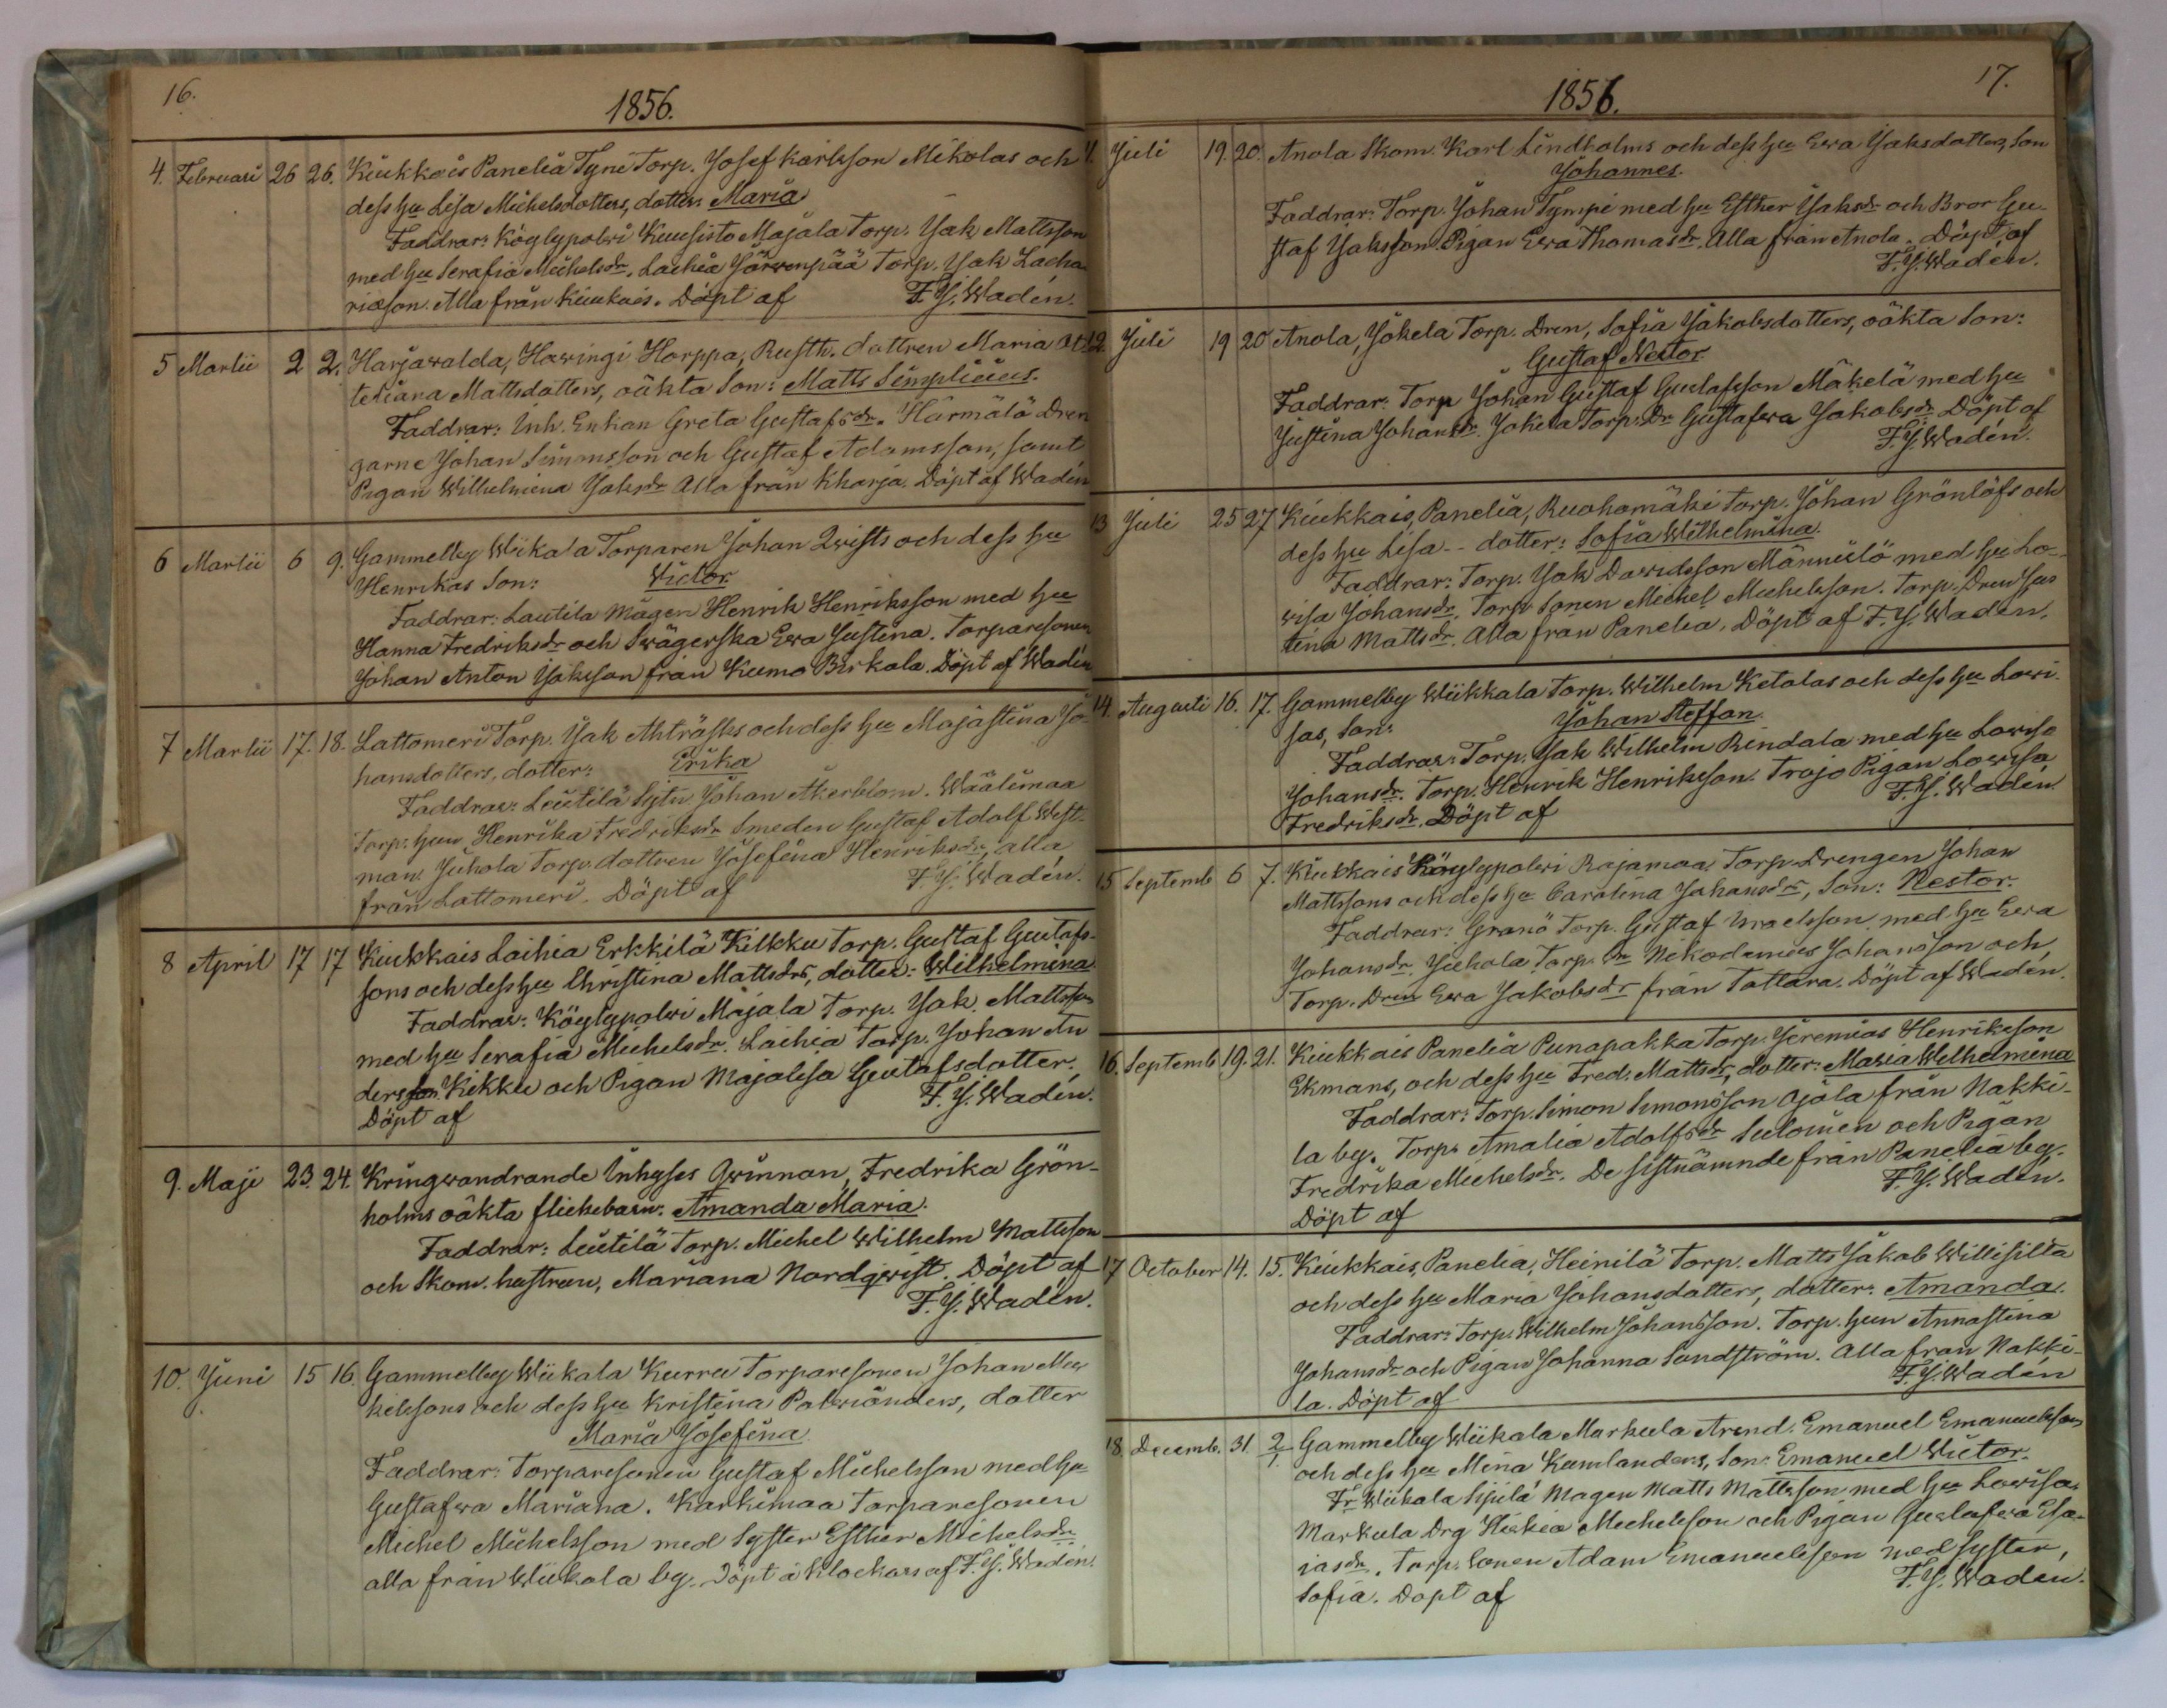 16.
1856.
4. Februari 26 26. Kiukkais Panelia Tyni Torp. Josef Karlsson Mikolas och
dess hu Lisa Michelsdotters, dotter: Maria
Faddrar: Köylypolwi Kuusisto Majala Torp. Jak Mattsson
med hu Serafia Michelsdr. Laihia Järwenpää Torp. Jak Zacha-
riæson. Alla från Kiukais. Döpt af F. J. Wadén.
5 Martii 2 2. Harjawalda, Hawingi Horppa, Rusth. dottren Maria Ot-
teliana Mattsdotters, oäkta Son: Matts Simplicius.
Faddrar: Inh. Enkan Greta Gustafsdr. Härmälä Dren
garne Johan Simonsson och Gustaf Adamsson, samt
Pigan Wilhelmina Jaksdr Alla från Kharja. Döpt af Wadén
6 Martii 6 9. Gammelby Wiikala Torparen Johan Qwists och dess hu
Henrikas Son: Victor.
Faddrar: Lautila Mågen Henrik Henriksson med hu
Hanna Fredriksdr och Swägerska Ewa Justina. Torparesonen
Johan Anton Jaksson från Kumo Pirkala. Döpt af Wadén
7 Martii 17. 18. Lattomeri Torp. Jak Ahträsks och dess hu Majastina Jo-
hansdotters, dotter: Erika
Faddrar: Leistilä Sytn. Johan Åkerblom. Wäälimaa
Torp. hun Henrika Fredriksdr Smeden Gustaf Adolf West-
man. Juhola Torp. dottren Josefina Henriksdr, alla
från Lattomeri. Döpt af F. J. Wadén.
8 April 17 17 Kiukkais Laihia Erkkilä Kikku Torp. Gustaf Gustafs-
sons och dess hu Christina Mattsdrs, dotter: Wilhelmina.
Faddrar: Köylypolwi Majala Torp. Jak Mattsson
med hu Serafia Michelsdr. Laihia Torp. Johan An
dersson Kikku och Pigan Majalisa Gustafsdotter.
Döpt af F. J. Wadén.
9. Maji 23. 24. Kringwandrande Inhyses Qwinnan, Fredrika Grön-
holms oäkta flickebarn: Amanda Maria.
Faddrar: Leistilä Torp. Michel Wilhelm Mattsson
och Skom. hustrun, Mariana Nordqwist. Döpt af
F. J. Wadén.
10. Juni 15 16. Gammelby Wiikala Kurru Torparesonen Johan Mic
kelssons och dess hu Kristina Palrianders, dotter
Maria Josefina.
Faddrar: Torparesonen Gustaf Michelsson med hu
Gustafwa Mariana. Karhimaa Torparesonen
Michel Michelsson med Syster Esther Michelsdr
alla från Wiikala by. Döpt å Klockars af F. J. Wadén.
1856.
17.
Juli 19. 20. Anola Skom. Karl Lindholms och dess hu Ewa Jaksdotters, Son
Johannes.
Faddrar: Torp. Johan Tympi med hu Esther Jaksdr och Bror Gu-
staf Jaksson. Pigan Ewa Thomasdr. Alla från Anola. Döpt af
F. J. Wadén.
12. Juli 19 20 Anola, Jokela Torp. Dren, Sofia Jakobsdotters, oäkta Son:
Gustaf Nestor
Faddrar: Torp Johan Gustaf Gustafsson Mäkelä med hu
Justina Johansdr. Jokela Torp. Dr Gustafwa Jakobsdr. Döpt af
F. J. Wadén.
13 Juli 25 27 Kiukkais, Panelia, Ruohomäki Torp. Johan Grönlöfs och
dess hu Lisa-- dotter: Sofia Wilhelmina.
Faddrar: Torp. Jak Dawidsson Männistö med hu Lo-
wisa Johansdr. Torp. Sonen Michel Michelsson. Torp. Dren Jus
tina Mattsdr. Alla från Panelia. Döpt af F. J. Wadén.
14. Augusti 16. 17. Gammelby Wiikkala Torp. Wilhelm Ketolas och dess hu Lowi-
sas, Son: Johan Steffan
Faddrar: Torp. Jak Wilhelm Rindala med hu Lowisa
Johansdr. Torp. Henrik Henriksson. Trojo Pigan Lowisa
Fredriksdr. Döpt af F. J. Wadén.
15 Septemb 6 7. Kiukkais Köylypolwi Rajamaa Torp. Drengen Johan
Mattssons och dess hu Carolina Johansdrs, Son: Nestor.
Faddrar: Granö Torp. Gustaf Israelsson med hu Ewa
Johansdr. Juhola Torp. Dr Nikodemus Johansson och
Torp. Dren Ewa Jakobsdr från Tattara. Döpt af Wadén.
16. Septemb 19. 21. Kiukkais Panelia Punapakka Torp. Jeremias Henriksson
Ekmans, och dess hu Fred. Mattsdr, dotter: Maria Wilhelmina
Faddrar: Torp. Simon Simonsson Ojala från Nakki-
la by. Torp. Amalia Adolfsdr Sulomen och Pigan
Fredrika Michelsdr. De sistnämnde från Panelia by.
Döpt af F. J. Wadén.
17 October 14. 15. Kiukkais, Panelia, Heinilä Torp. Matts Jakob Willisilta
och dess hu Maria Johansdotters, dotter: Amanda.
Faddrar: Torp. Wilhelm Johansson. Torp. hun Annastina
Johansdr och Pigan Johanna Sandström. Alla från Nakki-
la. Döpt af F. J. Wadén
18. Decemb. 31. 2/1. Gammelby Wiikala Markula Arend. Emanuel Emanuelsson
och dess hu Mina Kumlanders, Son: Emanuel Victor.
Fr. Wiikala Sipilä Mågen Matts Mattsson med hu Lowisa,
Markula Drg Hiskia Michelsson och Pigan Gustafwa Esa-
iasdr. Torp. Sonen Adam Emanuelsson med syster,
Sofia. Döpt af F. J. Wadén.